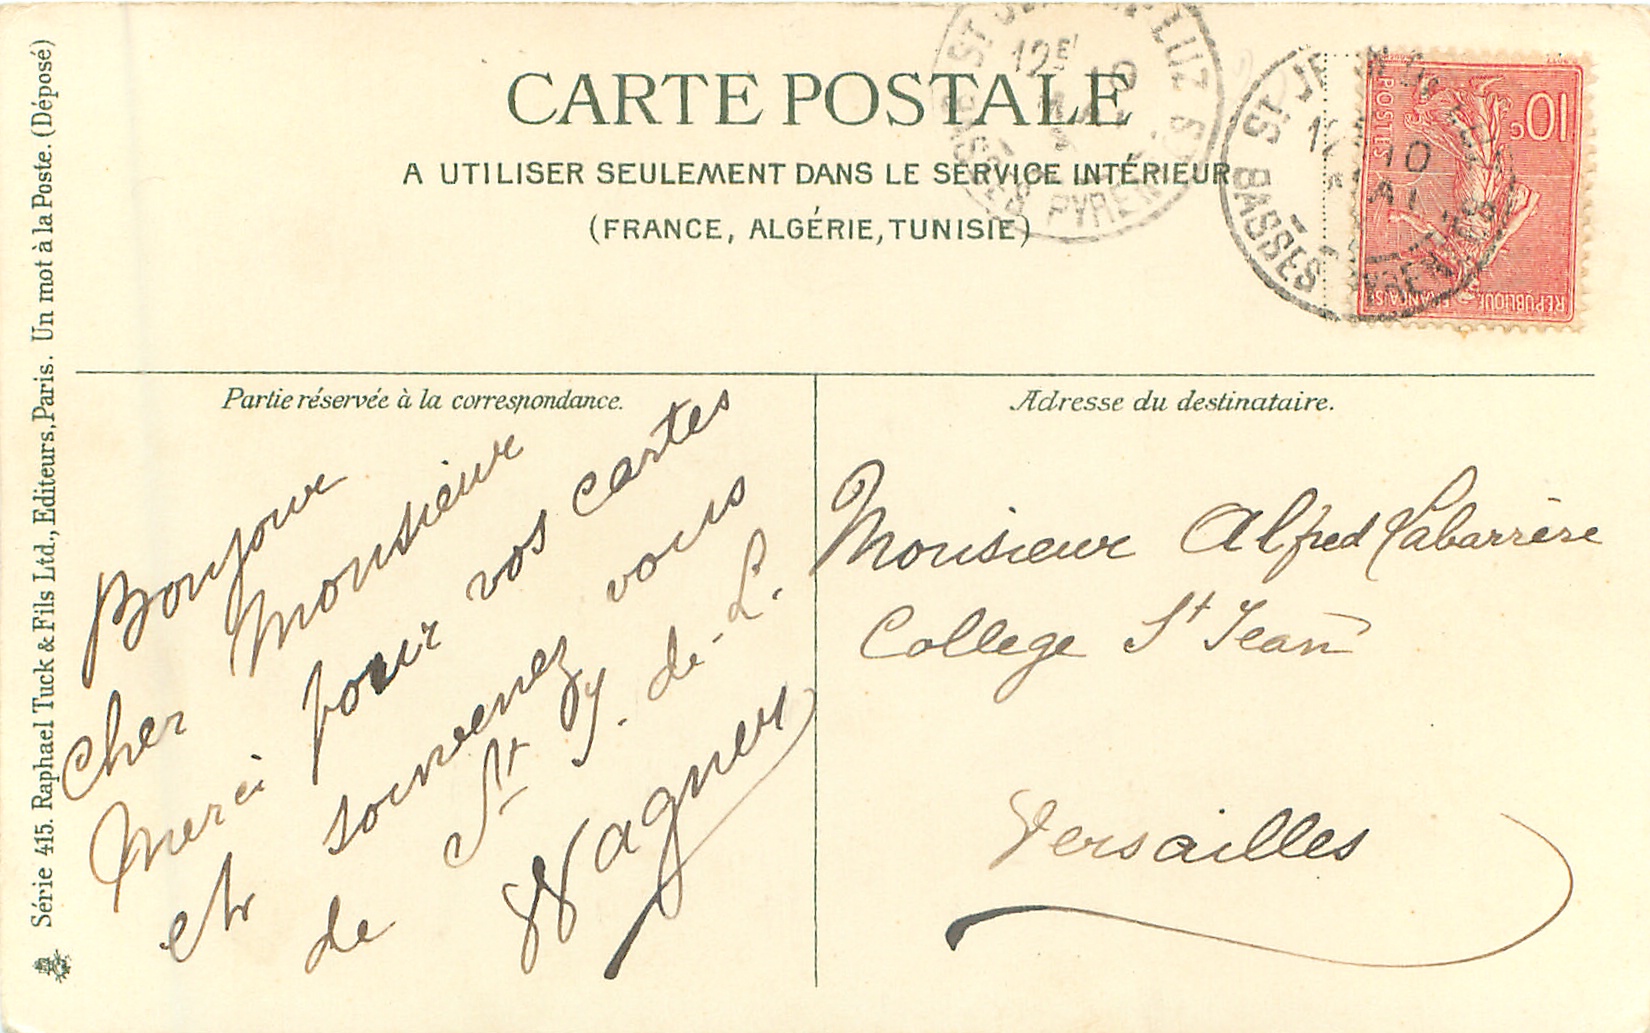 CARTE POSTALE
A UTILISER SEULEMENT DANS LE SERVICE INTÉRIEUR
(FRANCE, ALGÉRIE, TUNISIE)
BASSES PYRENEES
10c
POSTES
REPUBLIQUE FRANÇAISE
Série 415. Raphael Tuck & Fils Ltd., Editeurs, Paris. Un mot à la Poste. (Déposé)
Partie réservée à la correspondance.
Bonjour
cher Monsieur
Merci pour vos cartes
et souvenez vous
de St J. de-L.
Wagner
Adresse du destinataire.
Monsieur Alfred Labarrère
College St Jean
Versailles